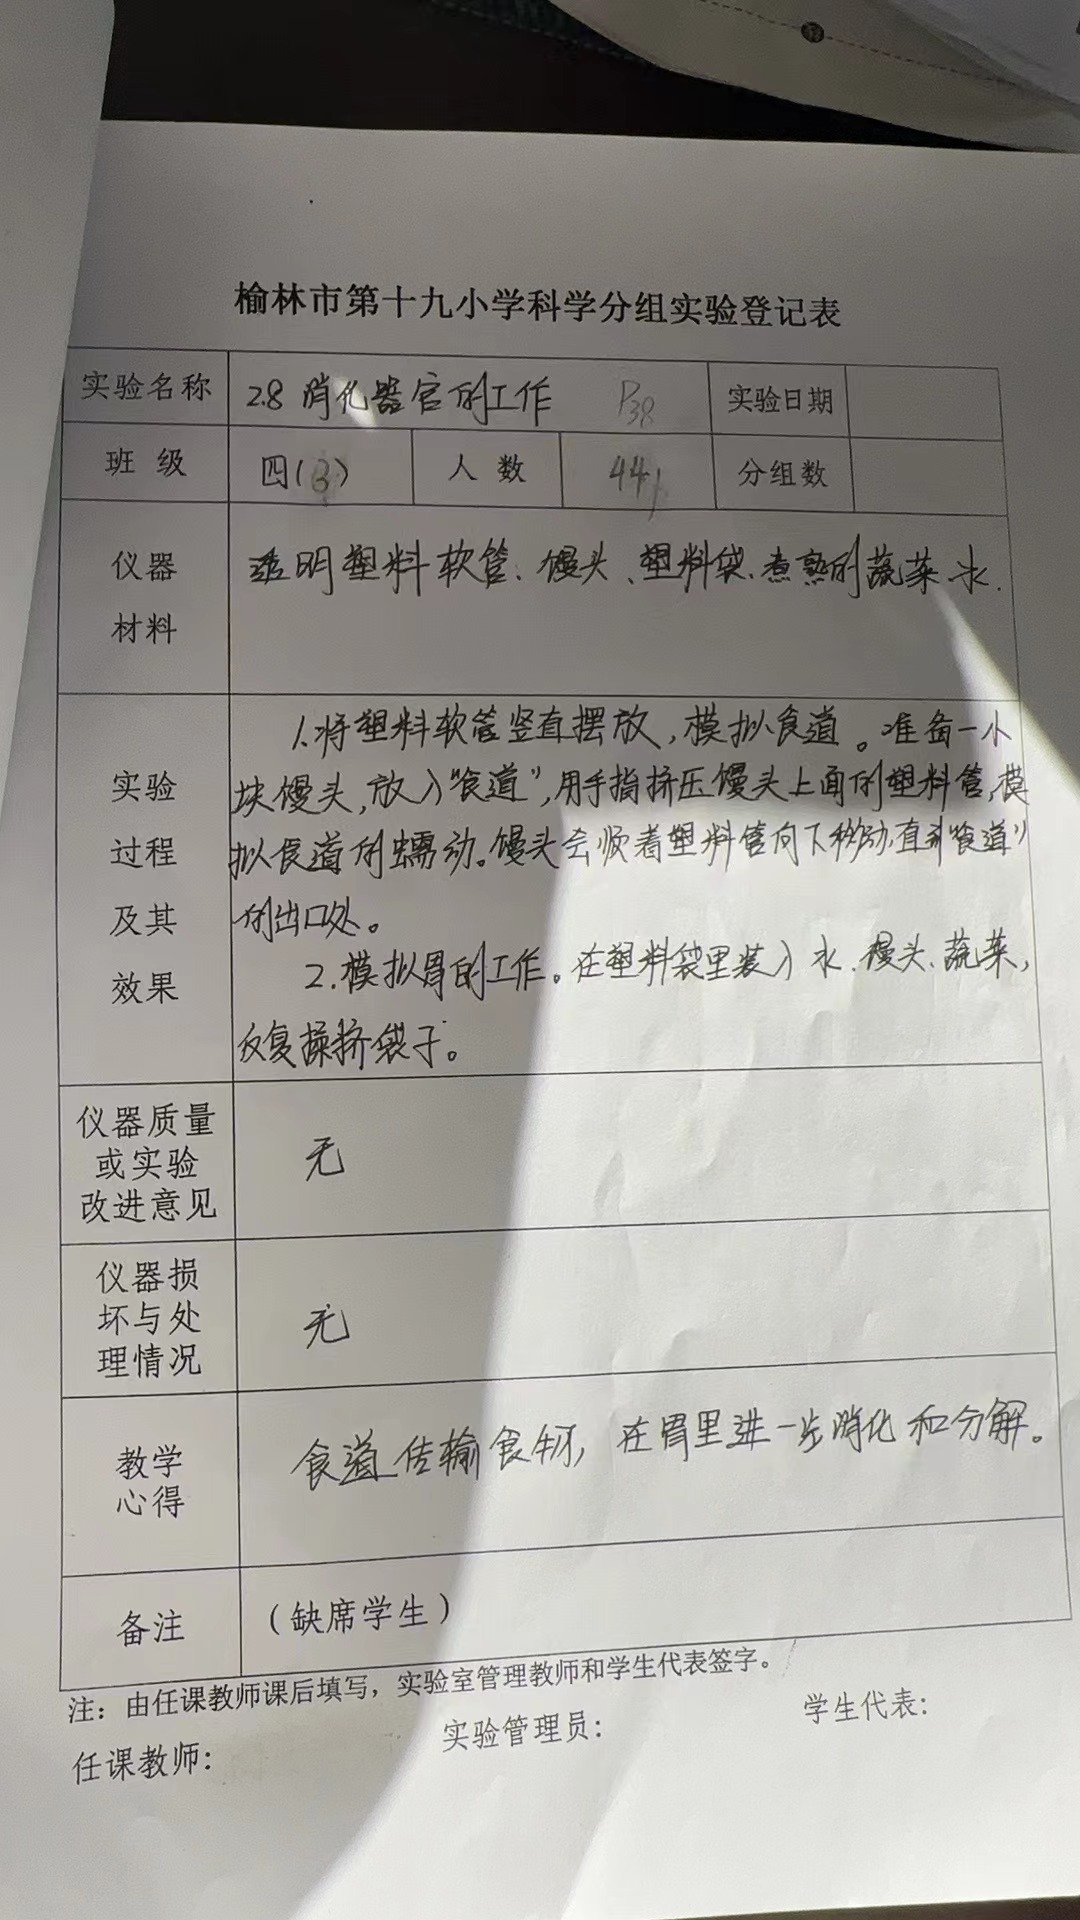 榆林市第十九小学科学分组实验登记表
实验名称 2.8 消化器官的工作 P38 实验日期
班级 四(3) 人数 44 分组数
仪器 透明塑料软管、馒头、塑料袋、煮熟的蔬菜、水.
材料
1.将塑料软管竖直摆放,模拟食道。准备一小
实验 块馒头,放入"食道",用手指挤压馒头上面的塑料管,模
过程 拟食道的蠕动。馒头会顺着塑料管向下移动,直到"食道"
及其 的出口处。
2.模拟胃的工作。在塑料袋里装入水、馒头、蔬菜,
效果 反复揉挤袋子。
仪器质量
或实验 无
改进意见
仪器损
坏与处 无
理情况
教学 食道传输食物,在胃里进一步消化和分解。
心得
备注 (缺席学生)
注:由任课教师课后填写,实验室管理教师和学生代表签字。
任课教师: 实验管理员: 学生代表: